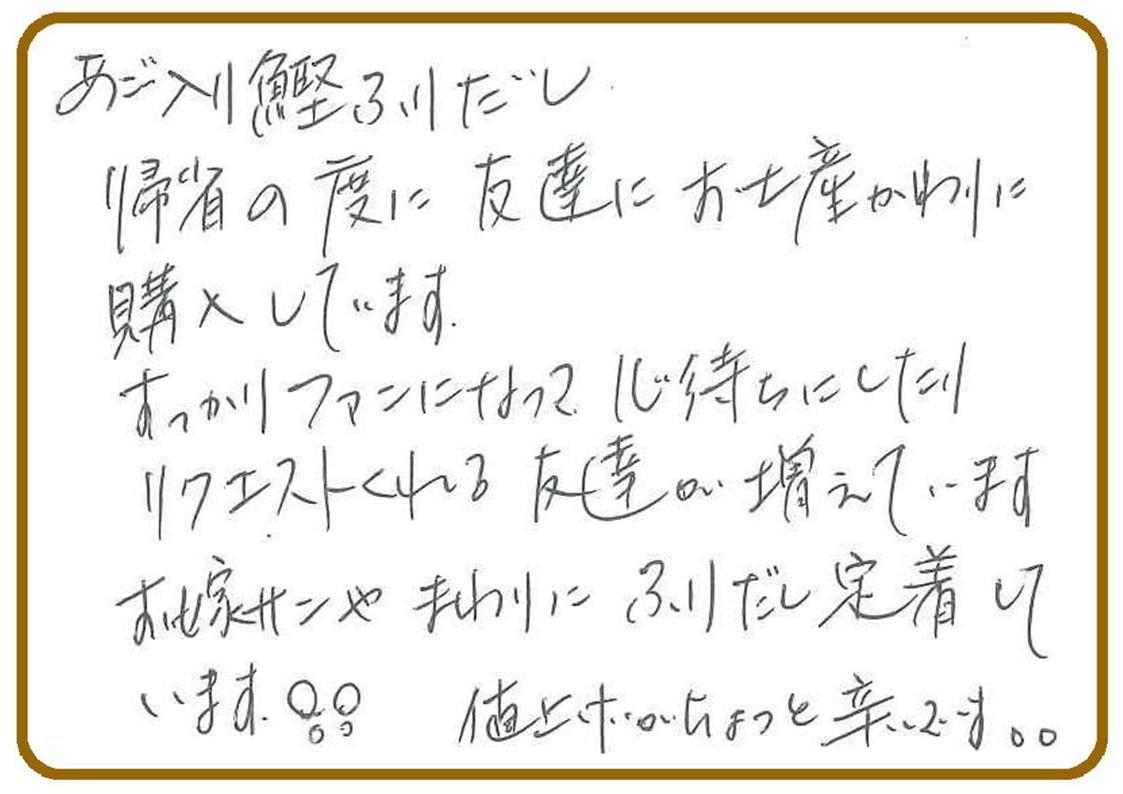 あご入り鰹ふりだし
帰省の度に 友達に お土産かわりに
購入しています。
すっかりファンになって 心待ちにしたり
リクエストくれる 友達が 増えています
お嫁サンや まわりに ふりだし定着して
います。 値上げがちょっと辛いです。。